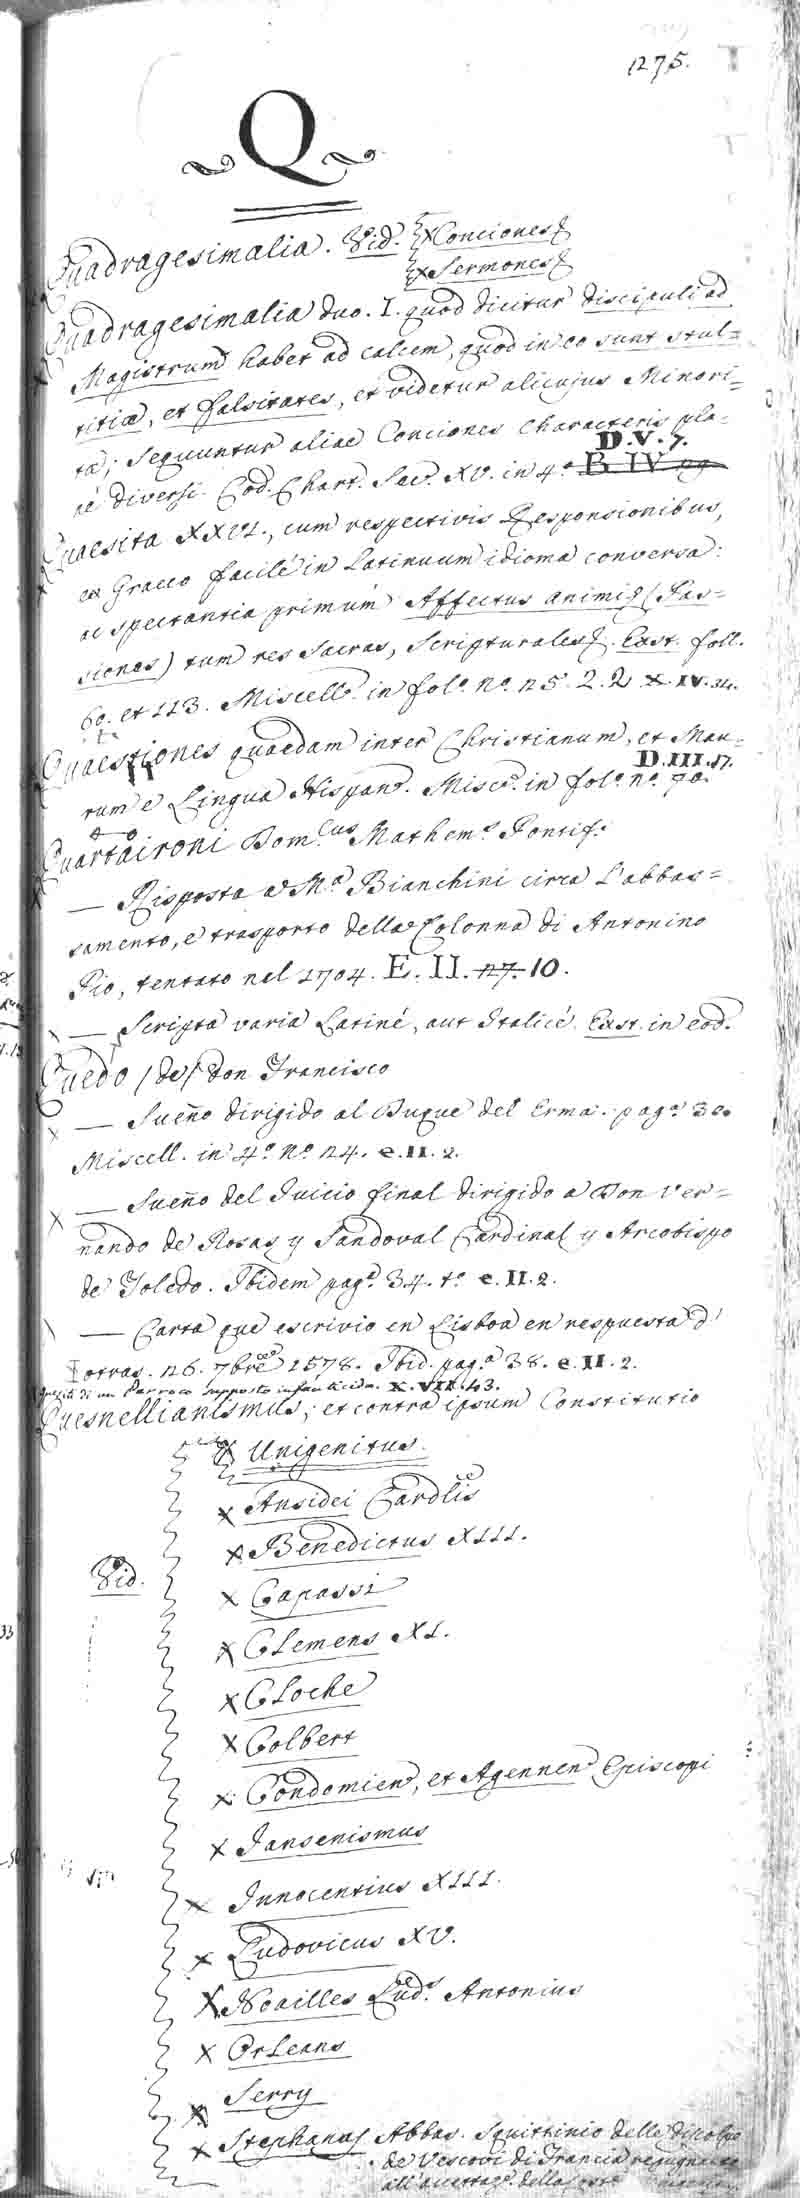 1275.
Q
Quadragesimalia. Vid. x Conciones
x Sermones
Quadragesimalia duo. I. quod dicitur discipuli ad
Magistrum habet ad calcem, quod in eo sunt stul=
titiæ, et falsitates, et videtur alicujus Minori=
tæ; sequuntur aliae Conciones characteris pla=
nè diversi. Cod. Chart. Sec. XV. in 4.º B. IV D.V.7.
Quaesita XXVI., cum respectivis Responsionibus,
ex Graeco facilè in Latinum idioma conversa:
ac spectantia primùm Affectus animi (Pas=
siones) tum res sacras, Scripturales. Exst. foll.
60. et 113. Miscell. in fol.º n.º 25. 2. 2 X. IV. 34.
Quaestiones quaedam inter Christianum, et Mau=
rum e Lingua Hispan. Misc. in fol.º n.º 70. D.III.17.
Quartaironi Dom.cus Mathem.s Pontif.s
— Risposta a M.r Bianchini circa l'abbas=
samento, e trasporto della Colonna di Antonino
Pio, tentato nel 1704. E. II. 17. 10.
— Scripta varia Latinè, aut Italicè. Exst. in eod.
Quedo (de) Don Francisco
— Sueño dirigido al Duque del erma. pag.ª 30.
Miscell. in 4.º n.º 24. e.II.2.
— Sueño del Juicio final dirigido a Don Ver=
nando de Rosas y Sandoval Cardinal y Arcobispo
de Toledo. Ibidem pag.ª 34. t.º e.II.2.
— Carta que escrivio en Lisboa en respuesta d'
otras. 26. 7bre 1578. Ibid. pag.ª 38. e.II.2.
di un Parroco supposto infanticida. X. VII. 43.
Quesnellianismus, et contra ipsum Constitutio
x Unigenitus.
x Ansidei Cardlis
x Benedictus XIII.
Vid.
x Capassi
x Clemens XI.
x Cloche
x Colbert
x Condomien, et Agennen Episcopi
x Jansenismus
x Innocentius XIII.
x Ludovicus XV.
x Noailles Lud.s Antonius
x Orleans
x Serry
x Stephanus Abbas. Squittinio delle discolpe
de Vescovi di Francia repugnanti
all'accettaz.e della